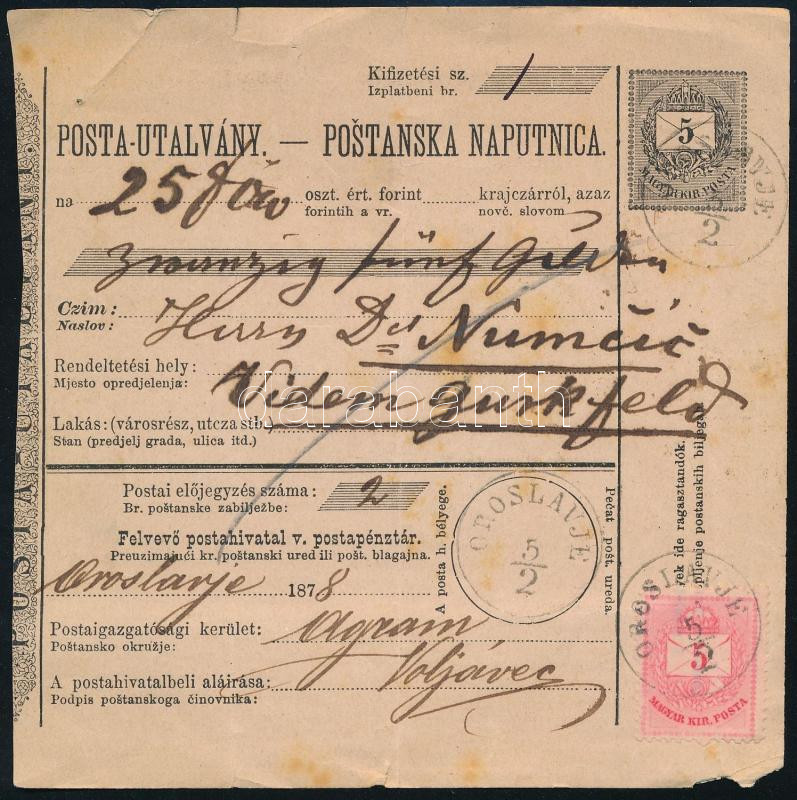 Kifizetési sz. 1
Izplatbeni br.
5
MAGYAR KIR. POSTA
POSTA-UTALVÁNY. — POŠTANSKA NAPUTNICA.
na 25 oszt. ért. forint krajczárról, azaz
forintih a vr. novč. slovom
Zwanzig fünf Gulden
Czim: Herrn
Naslov:
Rendeltetési hely:
Mjesto opredjelenja:
Videm Gurkfeld
Lakás: (városrész, utcza stb.)
Stan (predjelj grada, ulica itd.)
Postai előjegyzés száma: 2
Br. poštanske zabilježbe:
Felvevő postahivatal v. postapénztár.
Preuzimajući kr. poštanski ured ili pošt. blagajna.
Oroslavje 1878
Postaigazgatósági kerület: Agram
Poštansko okružje:
A postahivatalbeli aláirása: Voljavec
Podpis poštanskoga činovnika:
A posta h. bélyege.
OROSLAVJE
5/2
Pečat pošt. ureda.
rek ide ragasztandók.
pljenje postanskih biljegah
OROSLAVJE
5/2
5
MAGYAR KIR. POSTA
5/2
POSTA-UTALVÁNY.
darabanth